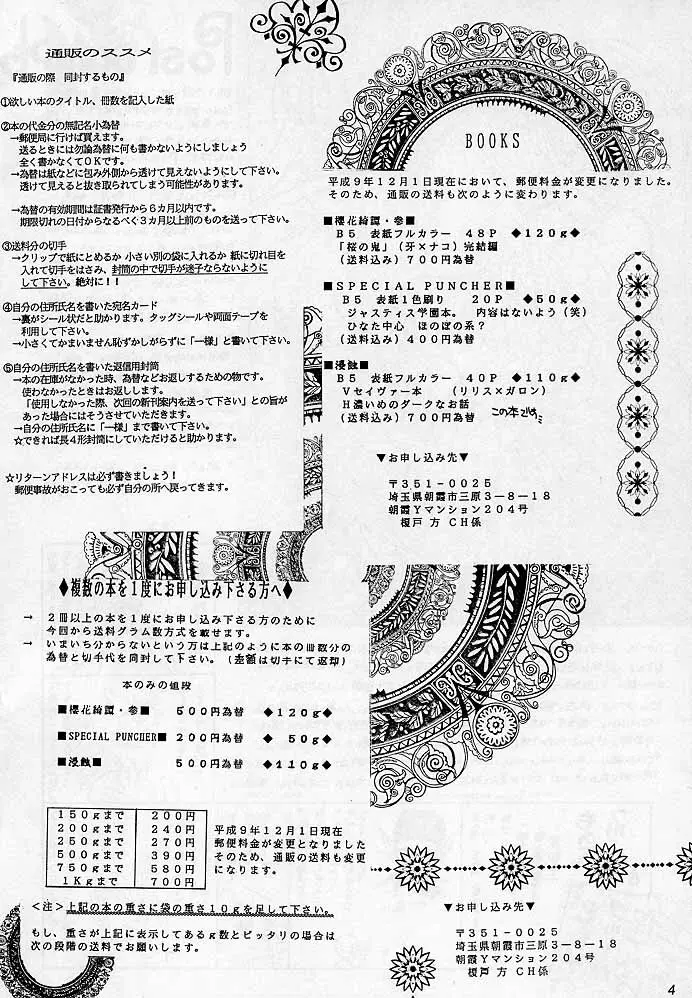 通販のススメ
『通販の際 同封するもの』
①欲しい本のタイトル、冊数を記入した紙
②本の代金分の無記名小為替
→郵便局に行けば買えます。
送るときには勿論為替に何も書かないようにしましょう
全く書かなくてOKです。
→為替は紙などに包み外側から透けて見えないようにして下さい。
透けて見えると抜き取られてしまう可能性があります。
→為替の有効期間は証書発行から6カ月以内です。
期限切れの日付からなるべく3カ月以上前のものを送って下さい。
③送料分の切手
→クリップで紙にとめるか 小さい別の袋に入れるか 紙に切れ目を
入れて切手をはさみ、封筒の中で切手が迷子ならないように
して下さい。絶対に!!
④自分の住所氏名を書いた宛名カード
→裏がシール状だと助かります。タックシールや両面テープを
利用して下さい。
→小さくてかまいません恥ずかしがらずに「一様」と書いて下さい。
⑤自分の住所氏名を書いた返信用封筒
→本の在庫がなかった時、為替などお返しするための物です。
使わなかったときはお返しします。
「使用しなかった際、次回の新刊案内を送って下さい」との旨が
あった場合にはそうさせていただきます。
→自分の住所氏名に「一様」まで書いて下さい。
☆できれば長4形封筒にしていただけると助かります。
☆リターンアドレスは必ず書きましょう!
郵便事故がおこっても必ず自分の所へ戻ってきます。
BOOKS
平成9年12月1日現在において、郵便料金が変更になりました。
そのため、通販の送料も次のように変わります。
■櫻花綺譚・参■
B5 表紙フルカラー 48P ◆120g◆
「桜の鬼」(牙×ナコ)完結編
(送料込み)700円為替
■SPECIAL PUNCHER■
B5 表紙1色刷り 20P ◆50g◆
ジャスティス学園本。 内容はないよう(笑)
ひなた中心 ほのぼの系?
(送料込み)400円為替
■浸蝕■
B5 表紙フルカラー 40P ◆110g◆
Vセイヴァー本 (リリス×ガロン)
H濃いめのダークなお話
(送料込み)700円為替
この本です。
▼お申し込み先▼
〒351-0025
埼玉県朝霞市三原3-8-18
朝霞Yマンション204号
榎戸 方 CH係
◆複数の本を1度にお申し込み下さる方へ◆
→ 2冊以上の本を1度にお申し込み下さる方のために
今回から送料グラム数方式を載せます。
→ いまいち分からないという方は上記のように本の冊数分の
為替と切手代を同封して下さい。(差額は切手にて返却)
本のみの値段
■櫻花綺譚・参■ 500円為替 ◆120g◆
■SPECIAL PUNCHER■ 200円為替 ◆ 50g◆
■浸蝕■ 500円為替 ◆110g◆
150gまで 200円
200gまで 240円
250gまで 270円
500gまで 390円
750gまで 580円
1Kgまで 700円
平成9年12月1日現在
郵便料金が変更となりました
そのため、通販の送料も変更
になります。
<注>上記の本の重さに袋の重さ10gを足して下さい。
もし、重さが上記に表示してあるg数とピッタリの場合は
次の段階の送料でお願いします。
▼お申し込み先▼
〒351-0025
埼玉県朝霞市三原3-8-18
朝霞Yマンション204号
榎戸 方 CH係
4